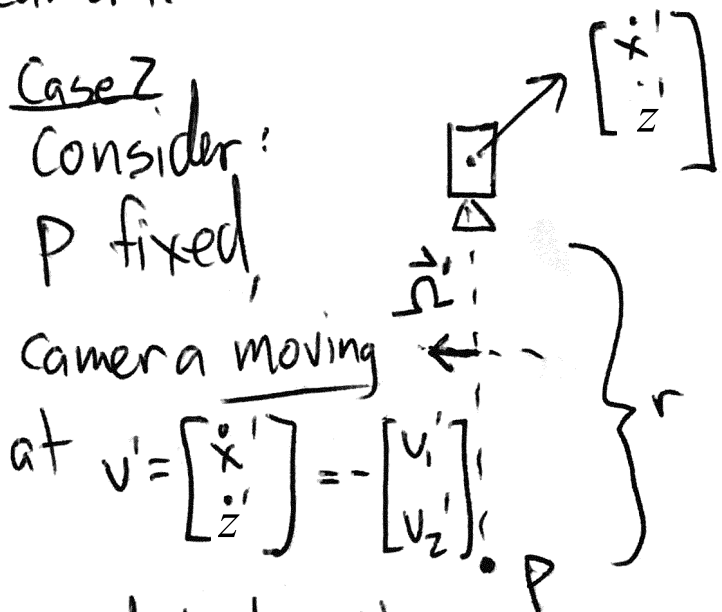 Case 2
Consider:
P fixed,
camera moving
at v' = [ẋ' ż'] = -[v₁' v₂']
[ẋ' ż']
Ω'
r
P